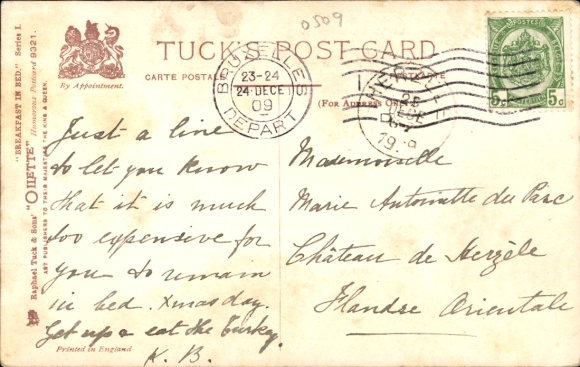 0509
TUCK'S POST CARD
CARTE POSTALE
POSTKARTE
(For Address Only)
By Appointment.
"BREAKFAST IN BED." Series I.
"OILETTE" Humorous Postcard 9321.
Raphael Tuck & Sons'
ART PUBLISHERS TO THEIR MAJESTIES THE KING & QUEEN.
BRUXELLES
23-24
24 DECE
09
DEPART
HERZELE
19
POSTES
5c 5c
Just a line
to let you know
that it is much
too expensive for
you to remain
in bed. Xmas day.
Get up & eat the turkey.
K. B.
Mademoiselle
Marie Antoinette du Parc
Château de Herzèle
Flandre Orientale
Printed in England